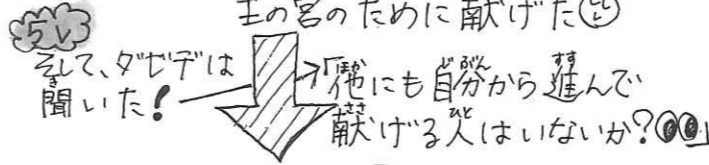 王の宮のために献げた
5し
そして、ダビデは
聞いた!
「他にも自分から進んで
献げる人はいないか?」